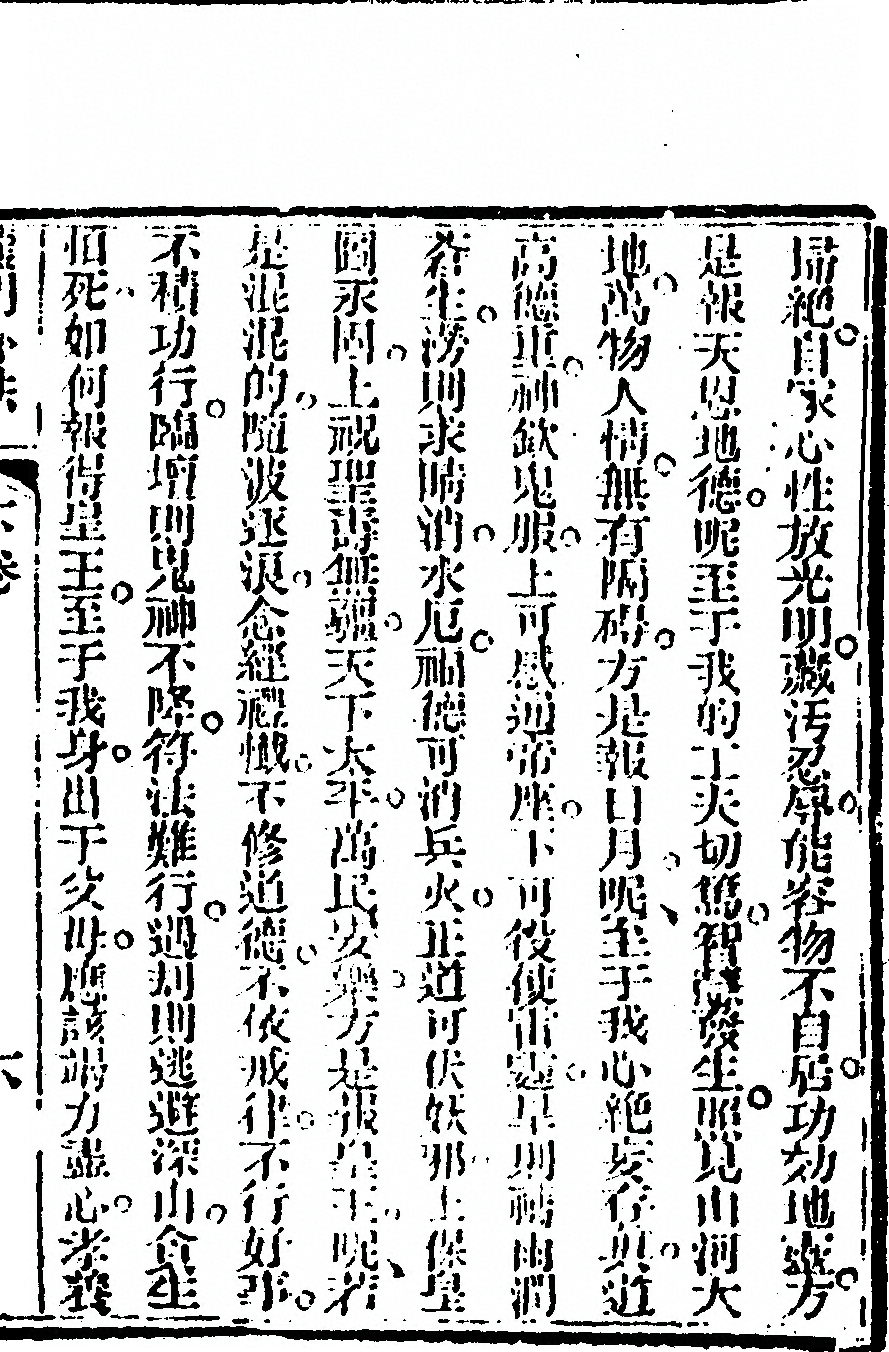 掃絕自家心性放光明藏污忍辱能容物不自居功効地靈方
是報天恩地德呢至于我的工夫切篤智慧發生照見山河大
地萬物人情無有隔碍方是報日月呢至于我心絕妄存真道
高德重神欽鬼服上可感通帝座下可役使雷霆旱則禱雨潤
蒼生澇則求晴消水厄福德可消兵火正道可伏妖邪上保皇
圖永固上祝聖壽無疆天下太平萬民安樂方是報皇王呢若
是混混的隨波逐浪念經禮懺不修道德不依戒律不行好事
不積功行臨壇則鬼神不降符法難行遇刦則逃避深山貪生
怕死如何報得皇王至于我身出于父母應該竭力盡心孝養
卷 六